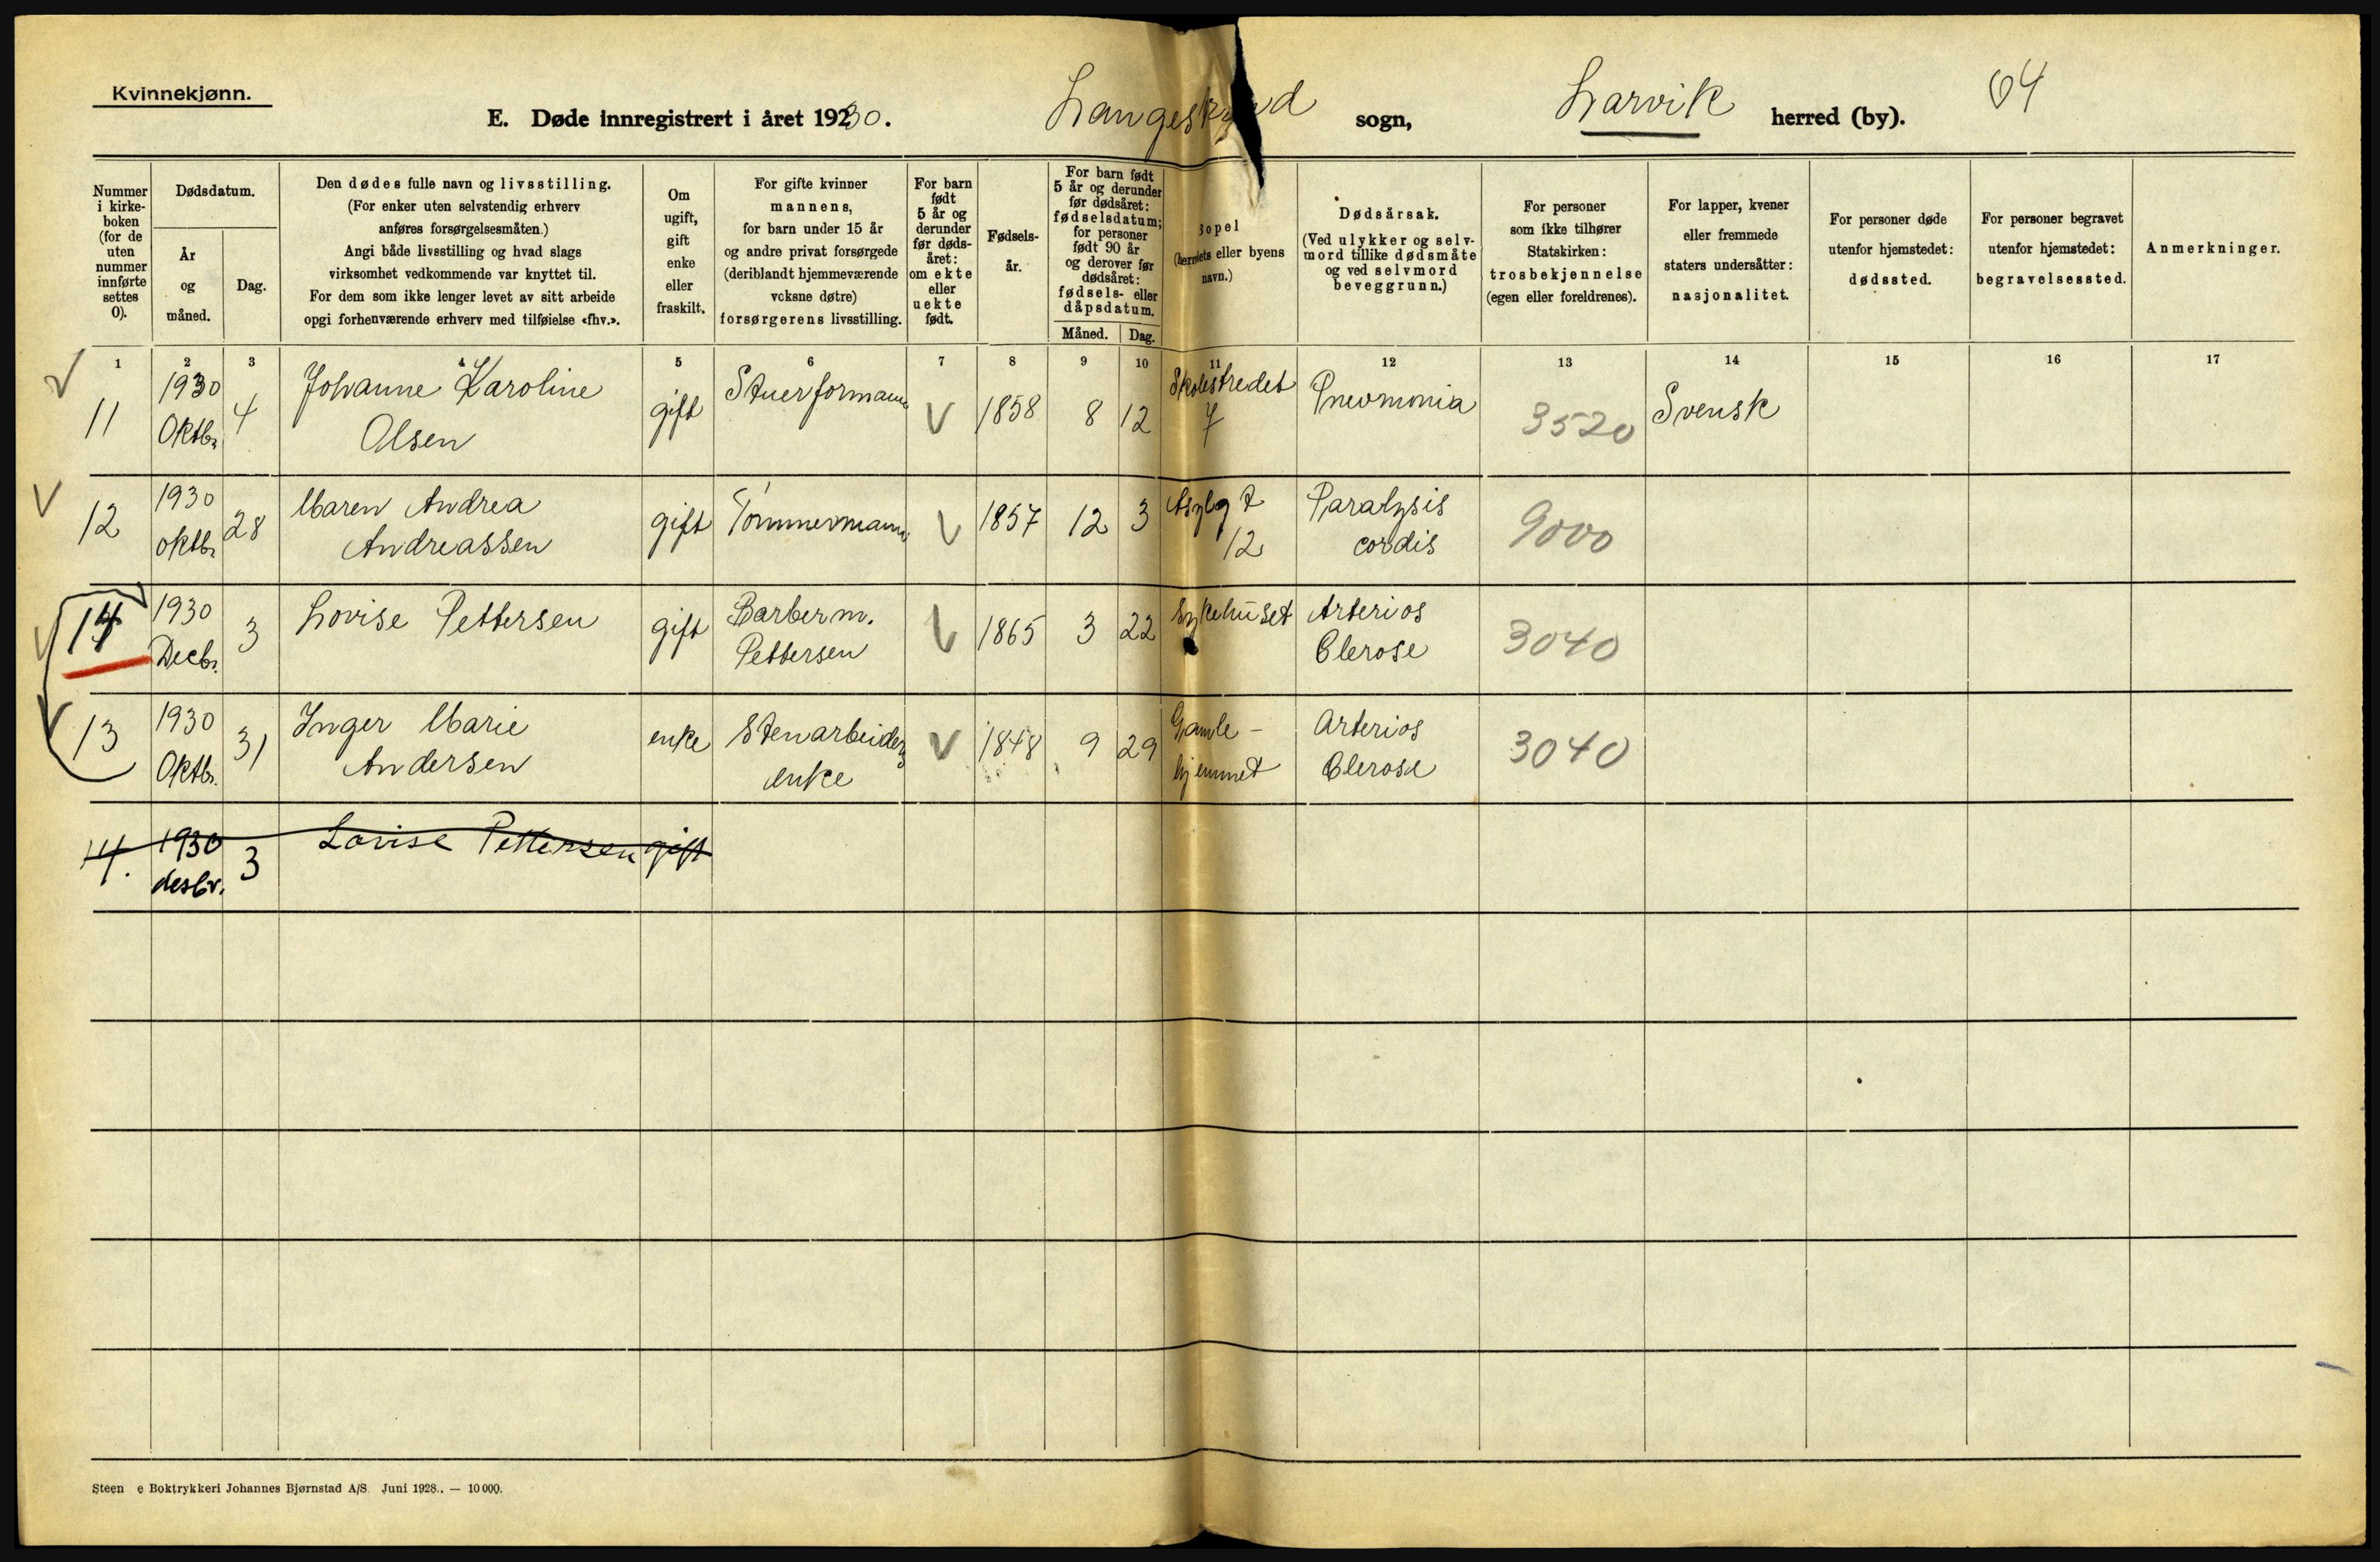 Kvinnekjønn.
E. Døde innregistrert i året 1930. Langestrand sogn, Larvik herred (by). 64
Nummer i kirkeboken (for de uten nummer innførte settes 0).
Dødsdatum.
År og måned.
Dag.
Den dødes fulle navn og livsstilling.
(For enker uten selvstendig erhverv
anføres forsørgelsesmåten.)
Angi både livsstilling og hvad slags
virksomhet vedkommende var knyttet til.
For dem som ikke lenger levet av sitt arbeide
opgi forhenværende erhverv med tilføielse «fhv.».
Om ugift, gift enke eller fraskilt.
For gifte kvinner
mannens,
for barn under 15 år
og andre privat forsørgede
(deriblandt hjemmeværende
voksne døtre)
forsørgerens livsstilling.
For barn født 5 år og derunder før dødsåret: om ekte eller uekte født.
Fødselsår.
For barn født
5 år og derunder
før dødsåret:
fødselsdatum;
for personer
født 90 år
og derover før
dødsåret:
fødsels- eller
dåpsdatum.
Måned. Dag.
Bopel
(herredets eller byens
navn.)
Dødsårsak.
(Ved ulykker og selvmord tillike dødsmåte
og ved selvmord
beveggrunn.)
For personer
som ikke tilhører
Statskirken:
trosbekjennelse
(egen eller foreldrenes).
For lapper, kvener
eller fremmede
staters undersåtter:
nasjonalitet.
For personer døde
utenfor hjemstedet:
dødssted.
For personer begravet
utenfor hjemstedet:
begravelsessted.
Anmerkninger.
1 2 3 4 5 6 7 8 9 10 11 12 13 14 15 16 17
11 1930 Oktbr. 4 Johanne Karoline Olsen gift Stuerformann V 1858 8 12 Skolestredet 7 Pnevmonia 3520 Svensk
12 1930 oktbr. 28 Maren Andrea Andreassen gift Tømmermann V 1857 12 3 Asylgt 12 Paralysis cordis 9000
14 1930 Decbr. 3 Lovise Pettersen gift Barberm. Pettersen V 1865 3 22 Sykehuset Arterios Clerose 3040
13 1930 Oktbr. 31 Inger Marie Andersen enke Stenarbeiders enke V 1848 9 29 Gamlehjemmet Arterios Clerose 3040
14. 1930 desbr. 3 Lovise Pettersen gift
Steen e Boktrykkeri Johannes Bjørnstad A/S. Juni 1928. — 10 000.